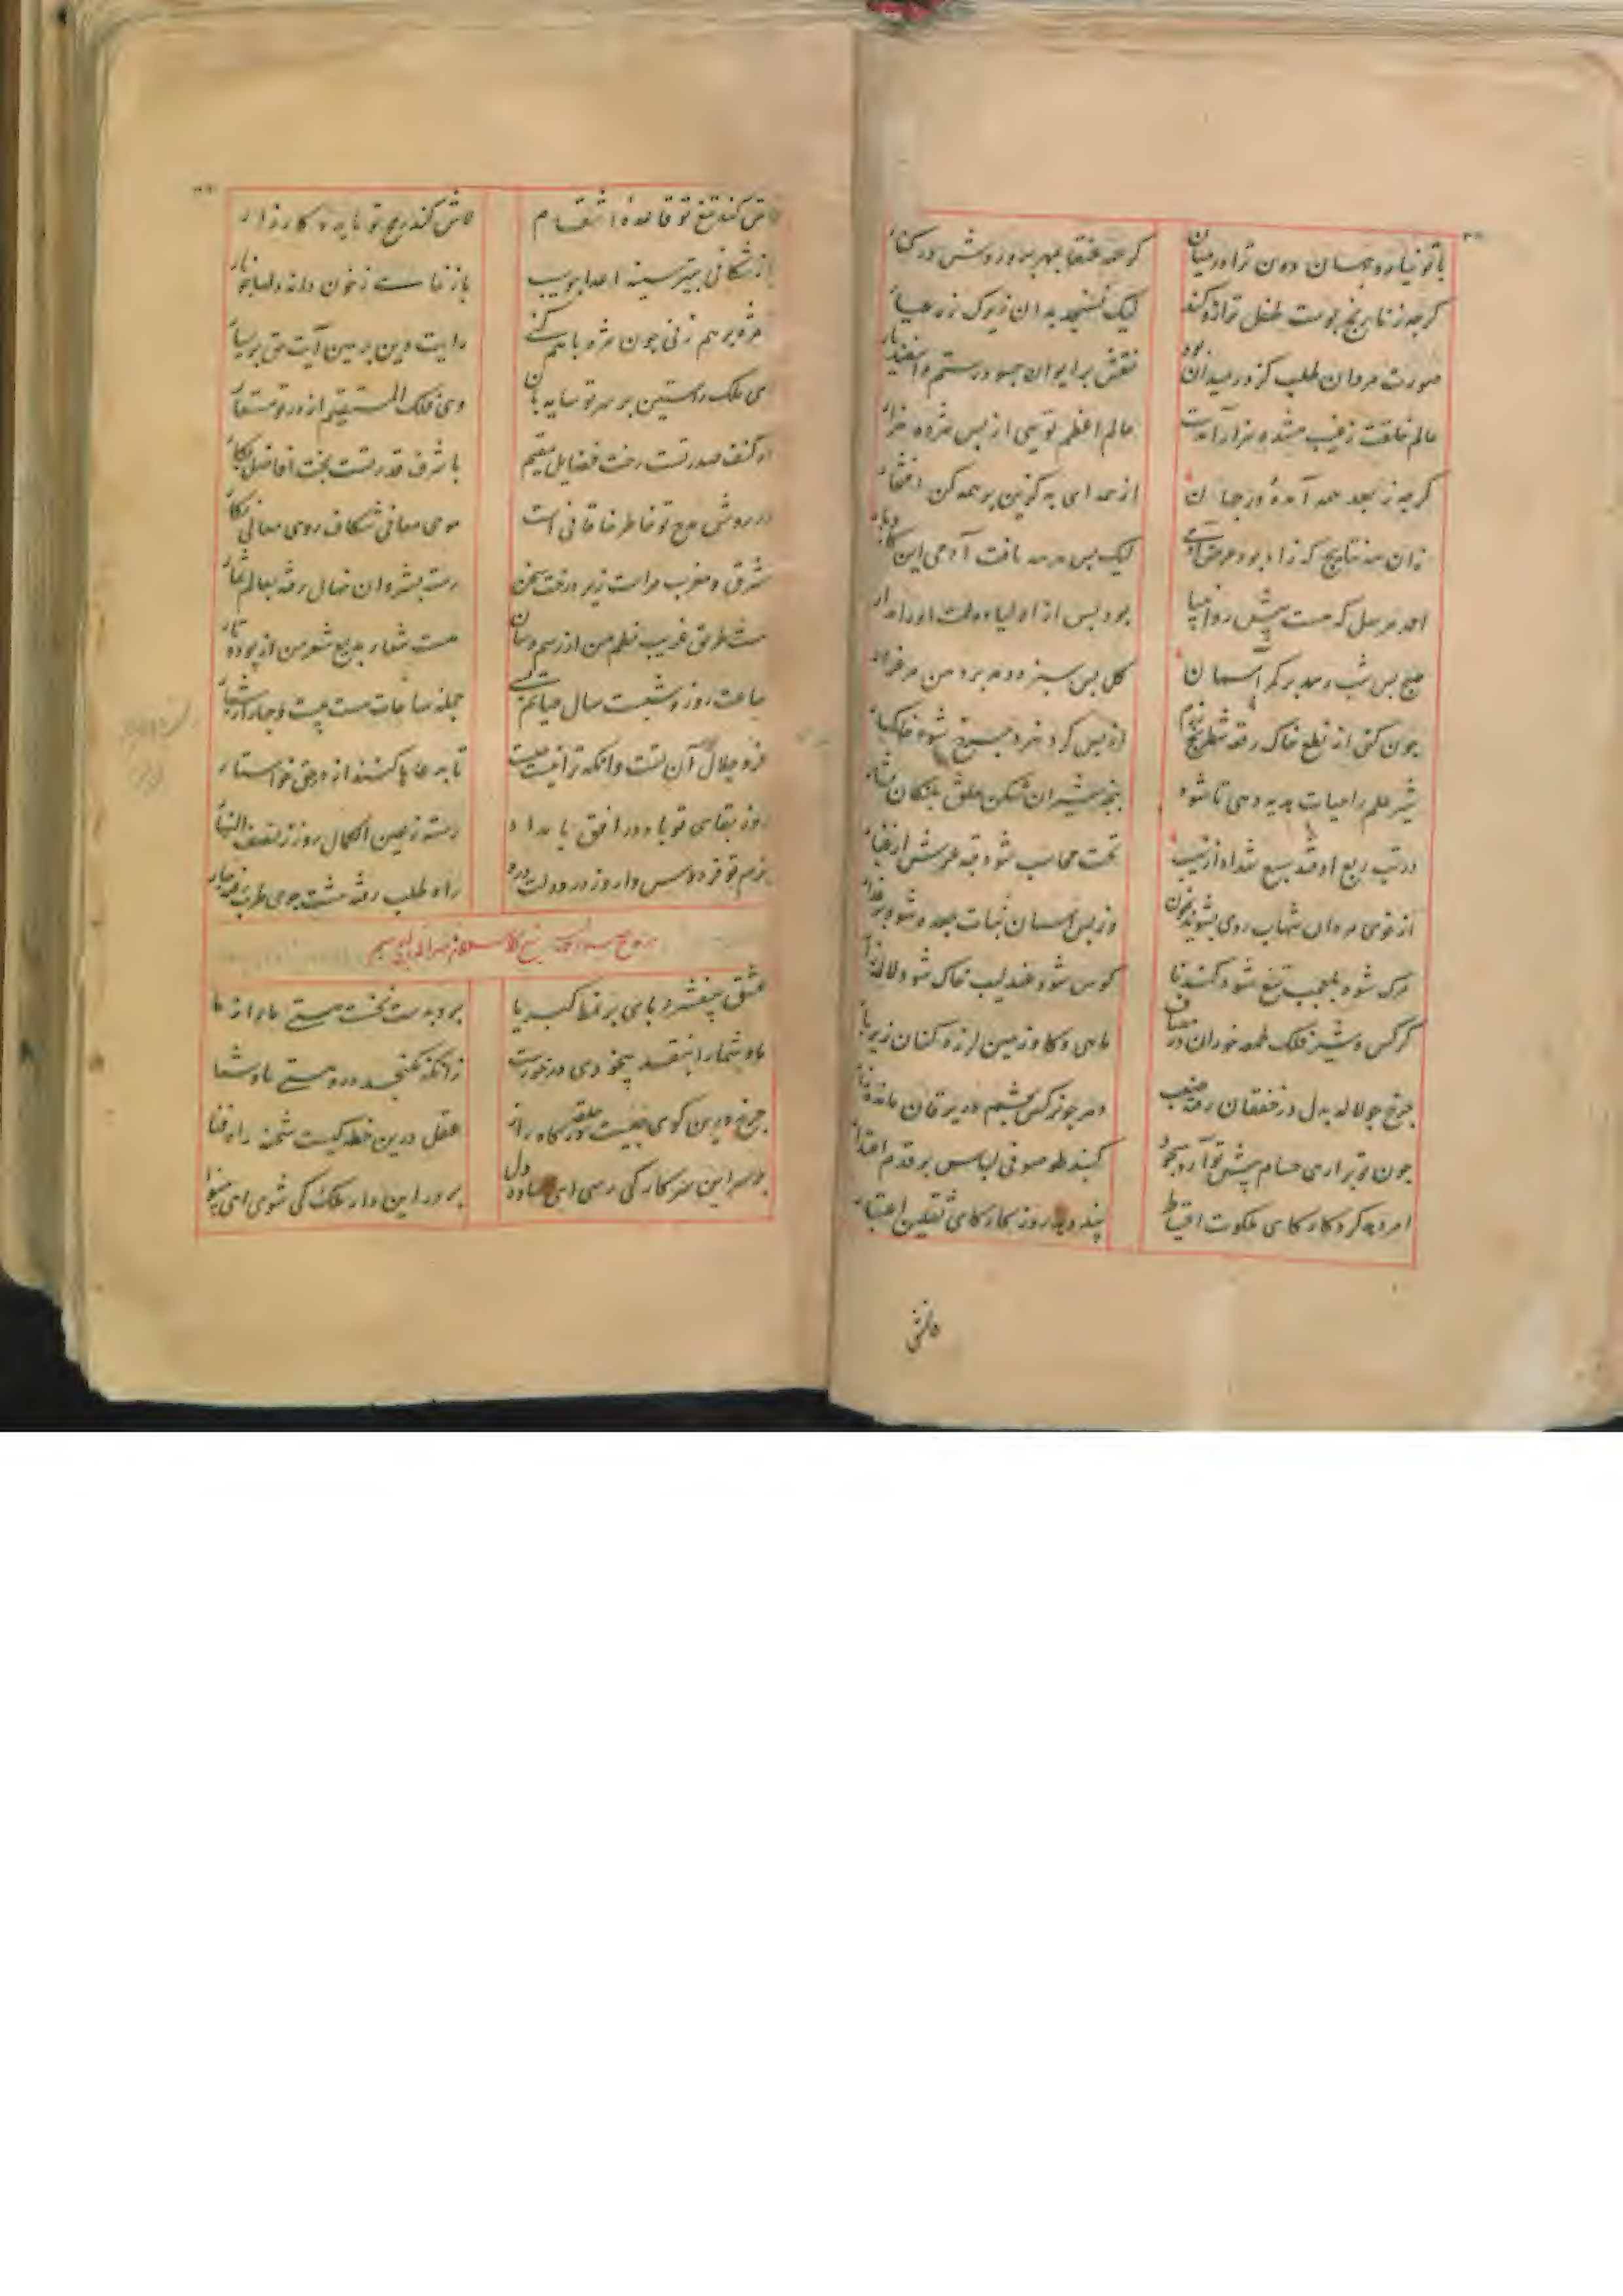 با تو نیارد جهان دون ترا در میان
گرچه عنقا بمهر پرورش در کنار
گرچه ز نارنج پوست طفل ترازو کند
لیک نسنجد بدان زیرک زر عیار
صورت مردان طلب کز در میدان بود
نقش بر ایوان چه سود رستم و اسفندیار
عالم خلقت ز غیب هژده هزار آمدست
عالم اعظم تویی از پس هژده هزار
گرچه ز بعد همه آمدهٔ در جهان
از همه ای به گزین بر همه کن افتخار
زان همه نتایج که زاد بود غرض آدمی
لیک پس هر سه یافت آدمی این کار و بار
احمد مرسل که هست پیش رو انبیا
بود پس از انبیا دولت او را مدار
صبح پس شب رسد بر کمر آسمان
گل پس سبزه دمد بر دهن مرغزار
چون کنی از نطع خاک رقعهٔ شطرنج رزم
از پس گرد نبرد چرخ شود خاکسار
شیر علم را حیات هدیه دهی تا شود
پنجهٔ شیران شکن حلق پلنگان فشار
در تب ربع اوفتد سبع شداد از نهیب
تخت محاسب شود قبهٔ عرش از غبار
از خوی مردان شهاب روی بشوید بخون
وز پس آسمان نبات جعد شود
ترک شود بلعجب تیغ شود گندنا
کوس شود عندلیب خاک شود لاله زار
کرکس و شیر فلک طعمه خوران در مصاف
ماهی و گاو زمین لرزه کنان زیر بار
چرخ چو لاله بدل در خفقان رفته صعب
دهر چو نرگس بچشم در یرقان مانده زار
چون تو برآری حسام پیش تو آرد سجود
گنبد صوفی لباس بر قدم اعتذار
امر بد کردگار کای ملکوت احتیاط
پند دهد روزگار کای ثقلین اعتبار
فاش کند تیغ تو قاعدهٔ انتقام
لاش کند رمح تو مایدهٔ کارزار
باز شکافی بتیر سینهٔ اعدا چو سیب
باز نمایی ز خون دانهٔ دلها چو نار
مژه بر هم زنی چون مژه با هم کنی
رایت دین بر یمین آیت حق بر یسار
ای ملک راستین بر سر تو سایه بان
وی فلک المستقیم از در تو مستعار
در کنف صدر تست رخت فضایل مقیم
با شرف قدر تست بخت افاضل بکار
در روش مدح تو خاطر خاقانی است
موی معانی شکاف روی معانی نگار
شرق و مغرب مراست زیر درخت سخن
رسته بشروان نهال رفته بعالم ثمار
هست طریق غریب نظم من از رسم و سان
هست شعار بدیع شعر من از پود و تار
ساعت روز و شبست سال حیاتم بلی
جمله ساعات هست بیست و چهار از شمار
فر و جلال آن تست وانکه ترا نیست
تا به دعاها کنند از در حق خواستار
روز بقای تو باد در افق بامداد
رسته ز عین الکمال روز ز نصف النهار
بزم تو فردوس وار وز در دولت درو
راه طلب رفته هشت جوی طرب رفته چار
عشق بیفشرد پای بر نمط کبریا
برد بدست نخست هستی ما را ز ما
ما و شما را بنقد بیخودی درخورست
زانکه نگنجد درو هستی ما و شما
چرخ درین کوی چیست حلقهٔ درگاه راز
عقل درین خطه کیست شحنهٔ راه فنا
بر سر این سر کار کی رسی ای ساده دل
بر در این دار ملک کی شوی ای بینوا